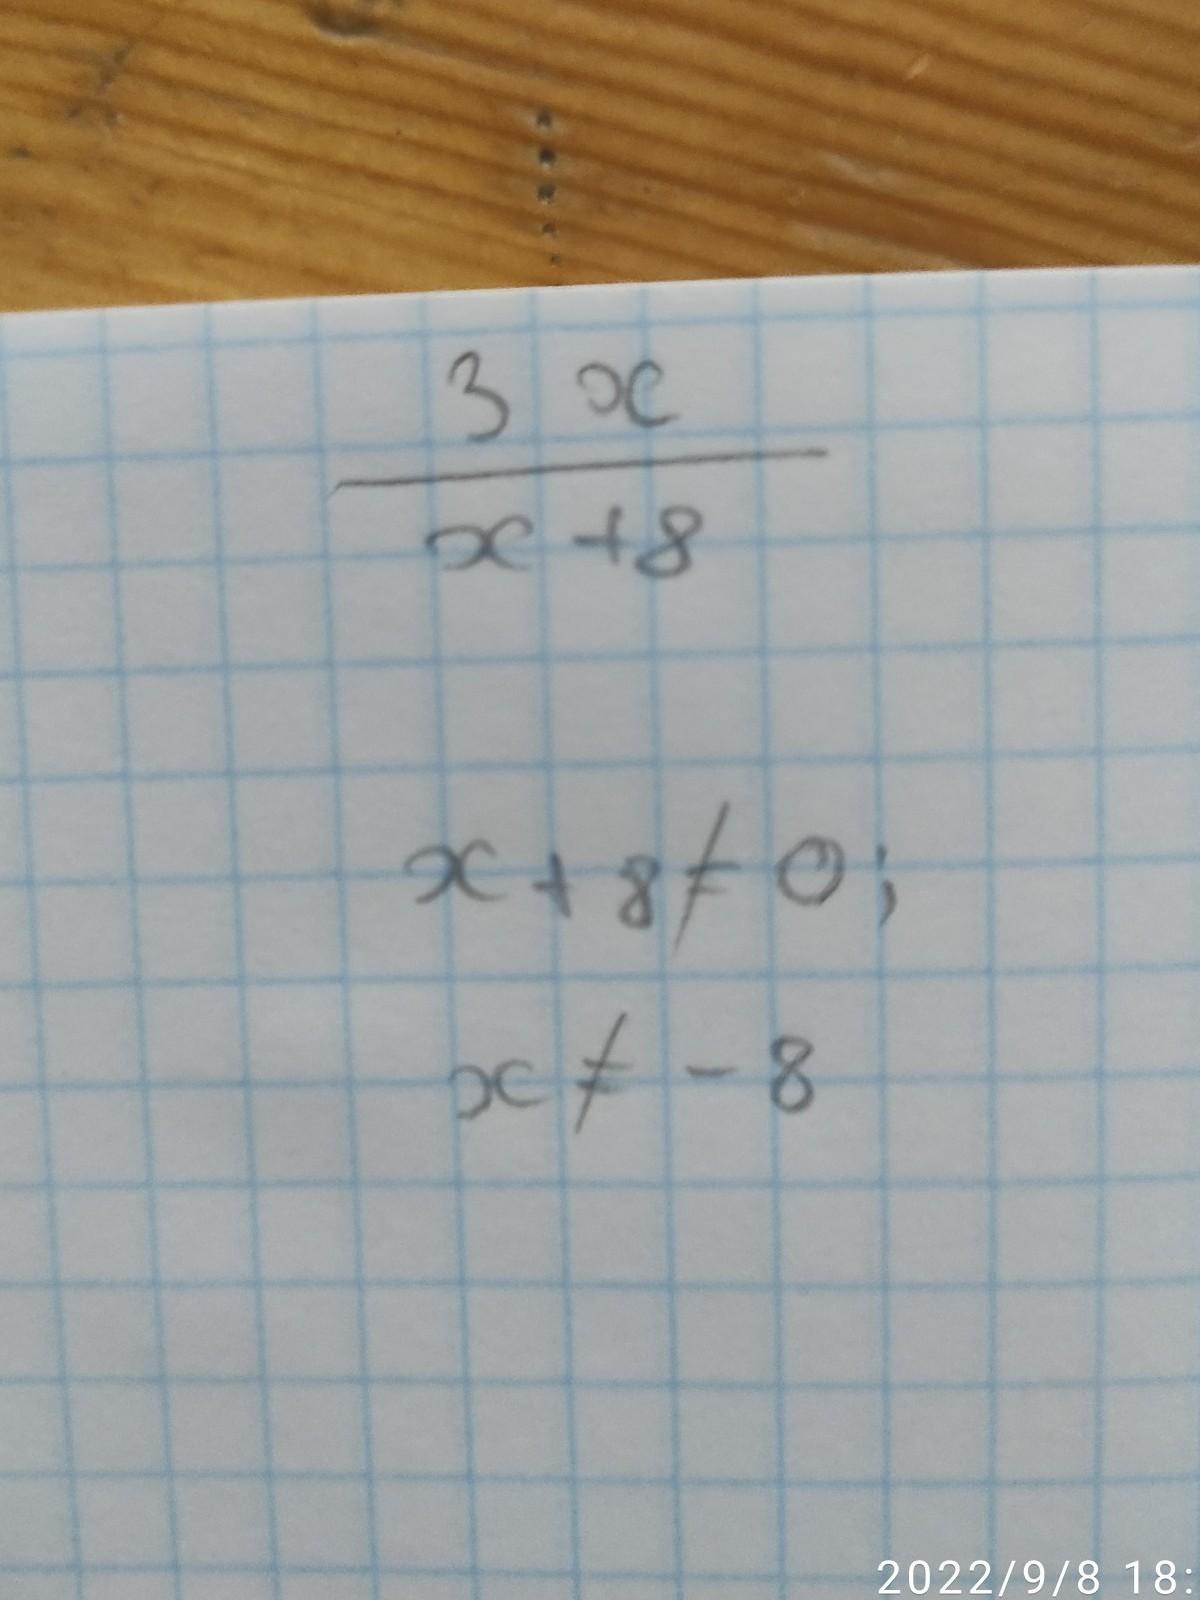 3 x
x + 8
x + 8 ≠ 0;
x ≠ - 8
2022/9/8 18: